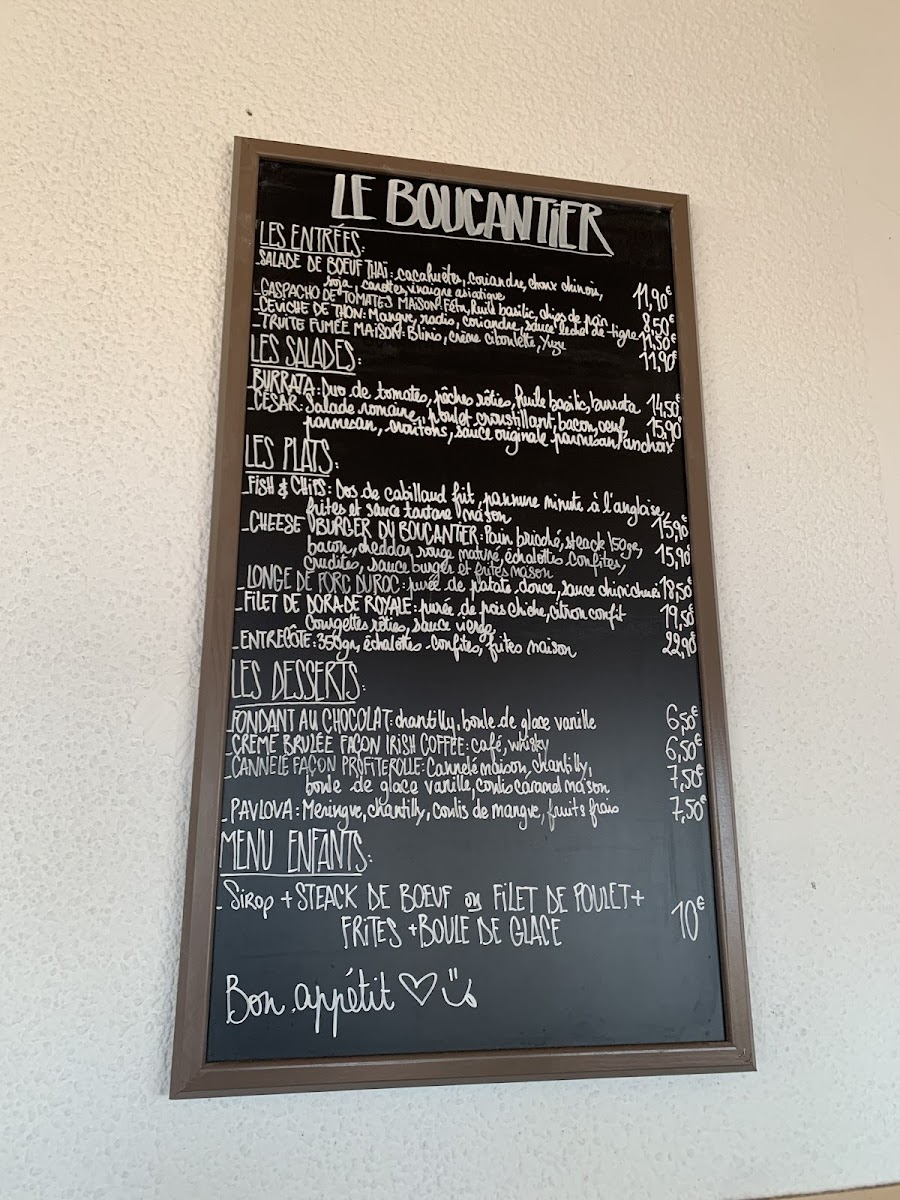 LE BOUCANTIER
LES ENTRÉES:
-SALADE DE BŒUF THAÏ: cacahuètes, coriandre, choux chinois, 11,90€
soja, carottes, vinaigre asiatique
-GASPACHO DE TOMATES MAISON: Féta, huile basilic, chips de pain 8,50€
-CEVICHE DE THON: Mangue, radis, coriandre, sauce leche de tigre 11,50€
-TRUITE FUMÉE MAISON: Blinis, crème ciboulette, Yuzu 11,90€
LES SALADES:
-BURRATA: Duo de tomates, pêches rôties, huile basilic, burrata 14,50€
-CÉSAR: Salade romaine, poulet croustillant, bacon, oeuf, 15,90€
parmesan, croûtons, sauce originale parmesan/anchoix
LES PLATS:
-FISH & CHIPS: Dos de cabillaud frit, pannure minute à l'anglaise,
frites et sauce tartare maison 15,90€
-CHEESE BURGER DU BOUCANTIER: Pain brioché, steack 150gr, 15,90€
bacon, cheddar rouge maturé, échalottes confites,
crudités, sauce burger et frites maison
-LONGE DE PORC DUROC: purée de patate douce, sauce chimichurri 18,50€
-FILET DE DORADE ROYALE: purée de pois chiche, citron confit 19,50€
Courgettes rôties, sauce vierge
-ENTRECÔTE: 350gr, échalottes confites, frites maison 22,90€
LES DESSERTS:
-FONDANT AU CHOCOLAT: chantilly, boule de glace vanille 6,50€
-CRÈME BRULÉE FAÇON IRISH COFFEE: café, whisky 6,50€
-CANNELÉ FAÇON PROFITEROLLE: Cannelé maison, chantilly, 7,50€
boule de glace vanille, coulis caramel maison
-PAVLOVA: Meringue, chantilly, coulis de mangue, fruits frais 7,50€
MENU ENFANTS:
-SIROP + STEACK DE BOEUF ou FILET DE POULET + 10€
FRITES + BOULE DE GLACE
Bon appétit ♡